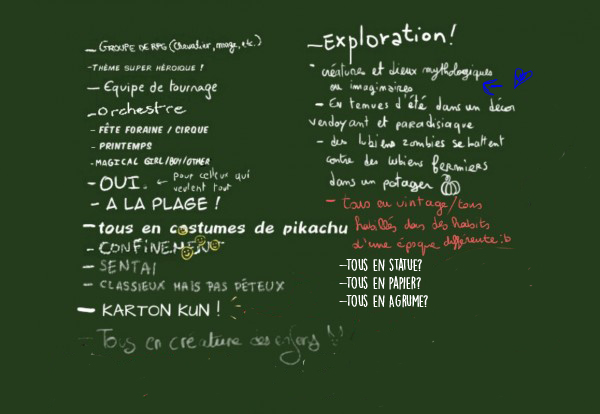 - GROUPE DE RPG (chevalier, mage, etc.)
-THÈME SUPER HÉROIQUE !
- Equipe de tournage
-orchestre
- FÊTE FORAINE / CIRQUE
- PRINTEMPS
-MAGICAL GIRL/BOY/OTHER
-OUI. ← pour celleux qui
veulent tout
- A LA PLAGE !
-tous en costumes de pikachu
- CONFINEMENT
- SENTAI
- CLASSIEUX MAIS PAS PÉTEUX
- KARTON KUN !
- Tous en créature des enfers
-Exploration!
- créature et dieux mythologiques
ou imaginaires
- En tenues d'été dans un décor
verdoyant et paradisiaque
- des lubiens zombies se battent
contre des lubiens fermiers
dans un potager
- tous en vintage/tous
habillés dans des habits
d'une époque différente :b
-TOUS EN STATUE?
-TOUS EN PAPIER?
-TOUS EN AGRUME?